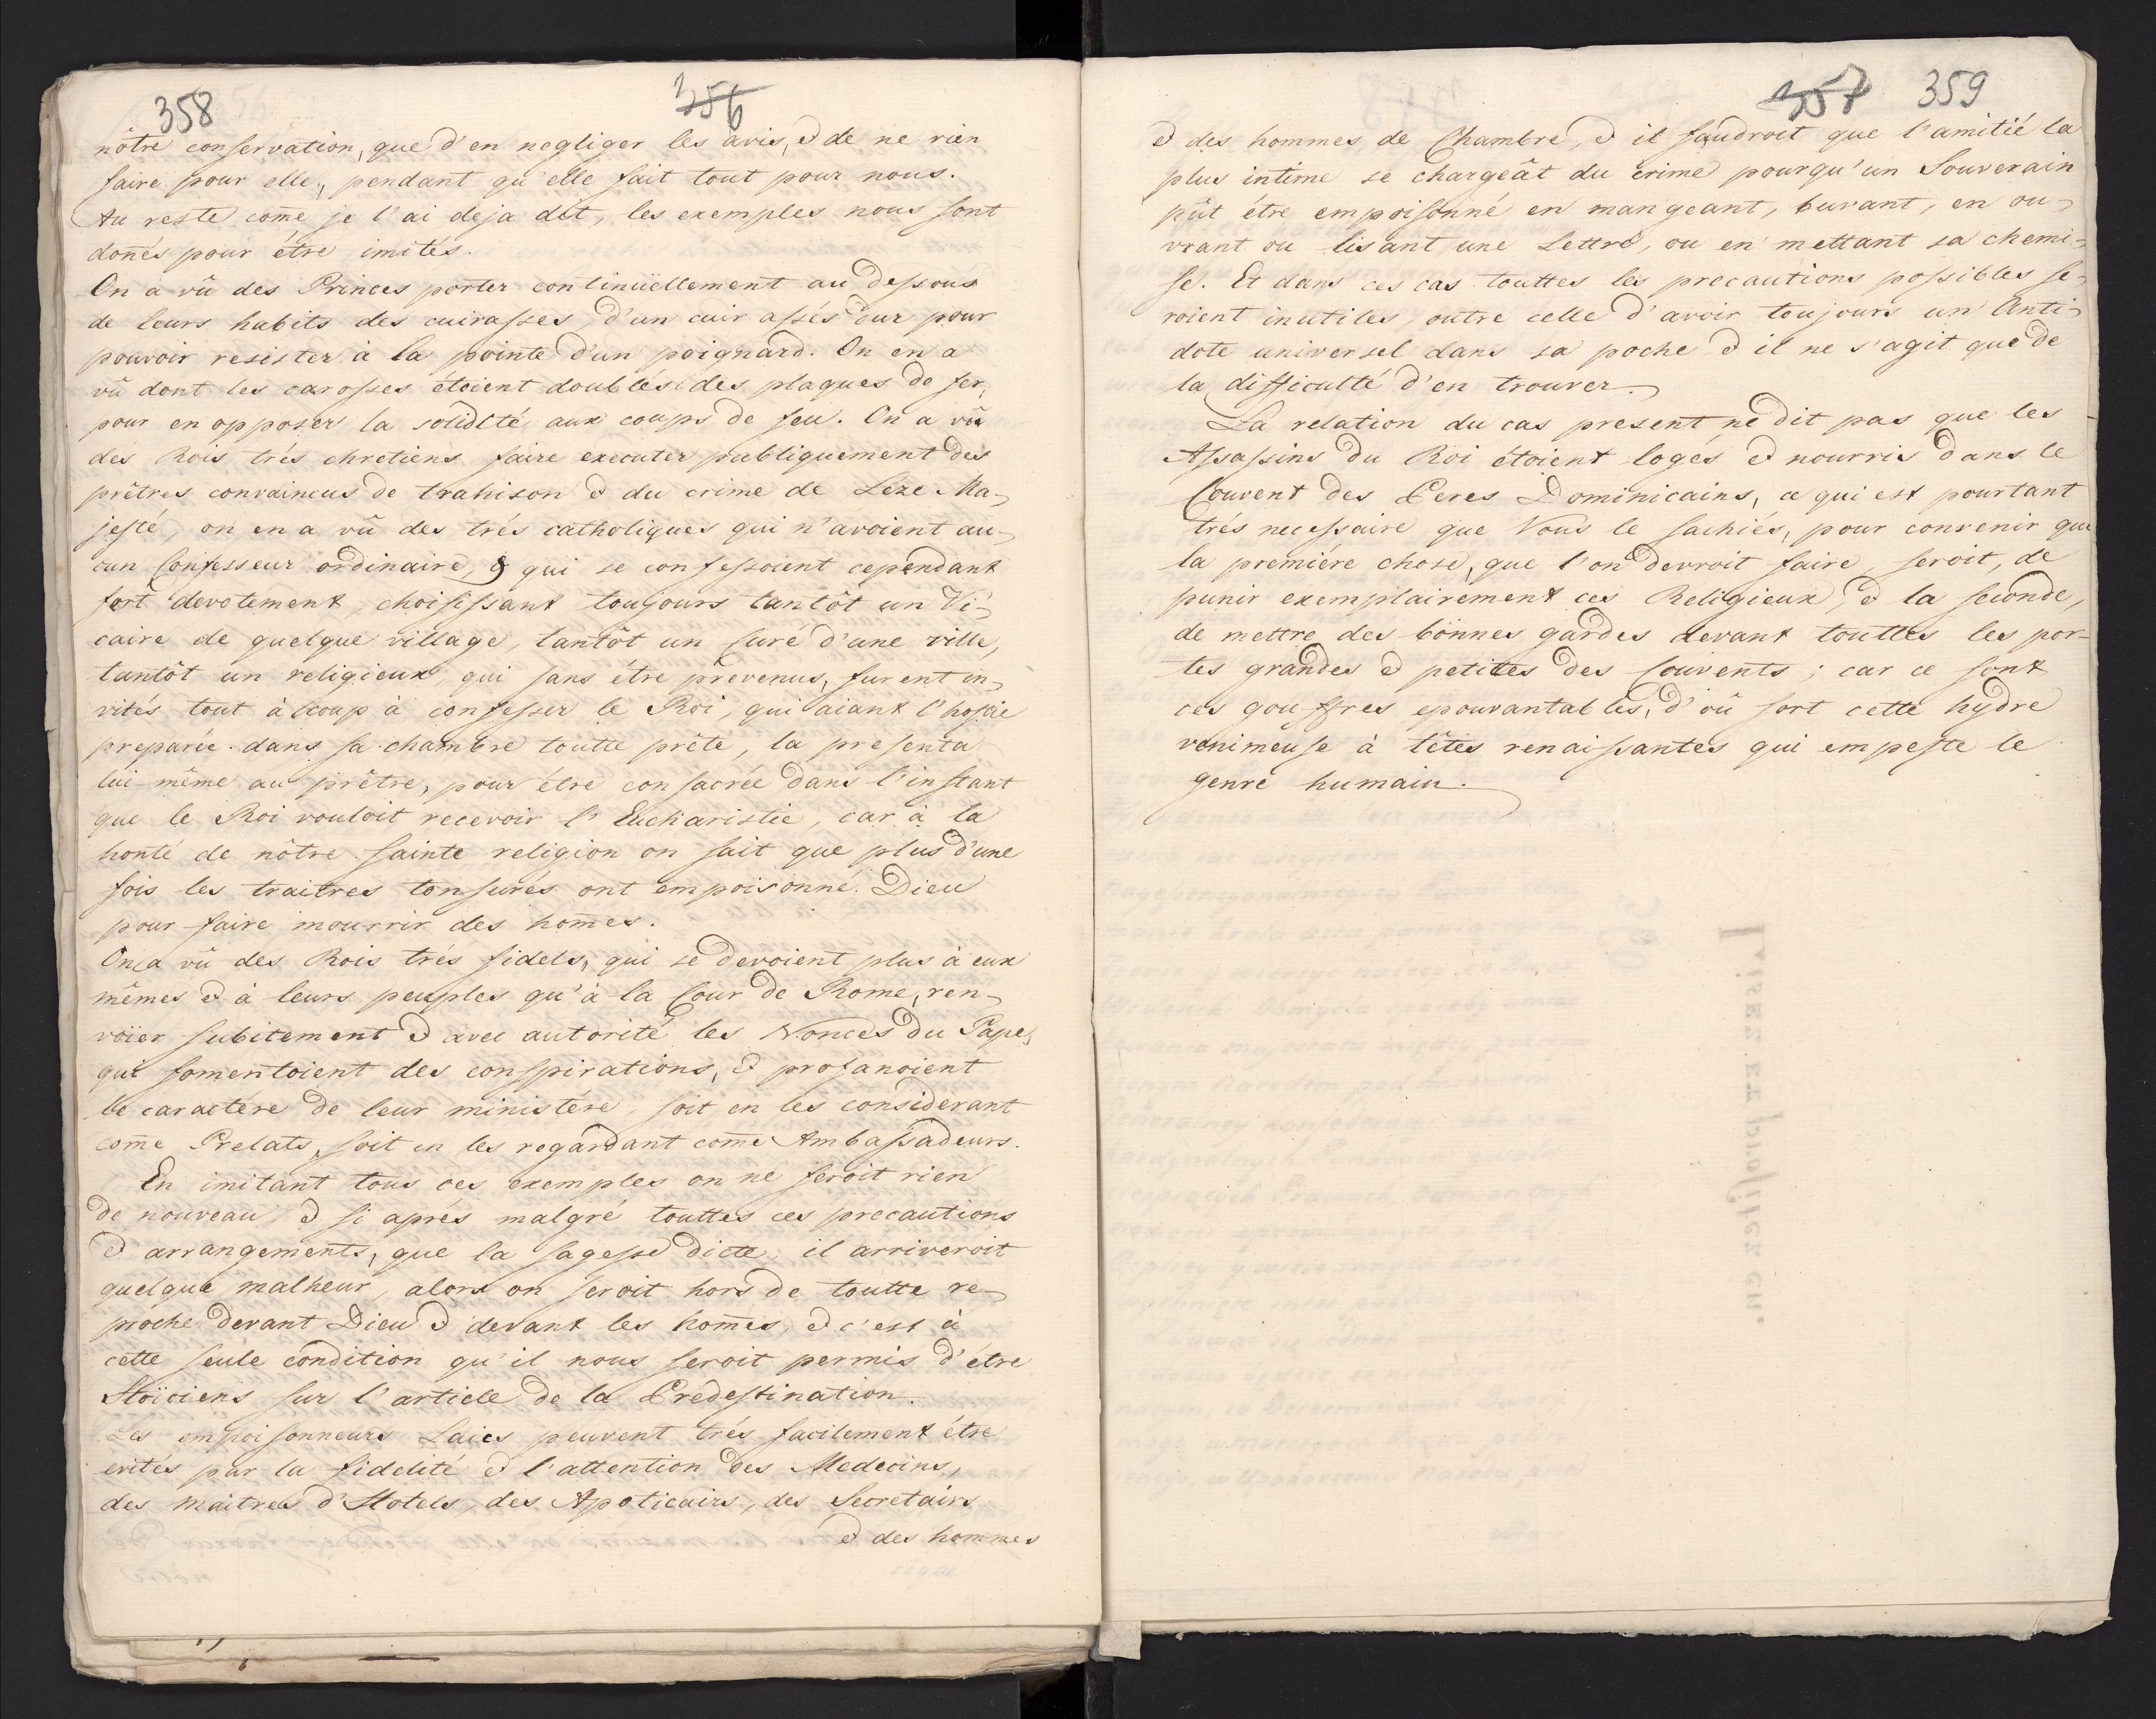 358 356
nôtre conservation, que d'en negliger les avis, & de ne rien
faire pour elle, pendant qu'elle fait tout pour nous.
Au reste com̄e je l'ai deja dit, les exemples nous sont
don̄és pour étre imités.
On a vû des Princes porter continüellement au dessous
de leurs habits des cuirasses, d'un cuir assés dur pour
pouvoir resister à la pointe d'un poignard. On en a
vû dont les carosses étoient doublés des plaques de fer,
pour en opposer la solidité aux coups de feu. On a vû
des Rois trés chretiens faire executer publiquement des
prêtres convaincus de trahison & du crime de Leze-Ma-
jesté, on en a vû des trés catholiques qui n'avoient au-
cun Confesseur ordinaire, & qui se confessoient cependant
fort devotement, choisissant toujours tantôt un Vi-
caire de quelque village, tantôt un Curé d'une ville,
tantôt un religieux qui sans étre prevenus, furent in-
vités tout à coup à confesser le Roi, qui aiant l'hostie
preparée dans sa chambre toutte prête, la presenta
lui-même au prêtre, pour étre consacrée dans l'instant
que le Roi vouloit recevoir l'Eucharistie, car à la
honte de nôtre sainte religion on sait que plus d'une
fois les traitres tonsurés ont empoisonné Dieu
pour faire mourrir des hom̄es.
On a vû des Rois trés fidels, qui se devoient plus à eux
mêmes & à leurs peuples qu'à la Cour de Rome, ren-
voïer subitement & avec autorité les Nonces du Pape,
qui fomentoient des conspirations, & profanoient
le caractére de leur ministére, soit en les considerant
com̄e Prelats, soit en les regardant com̄e Ambassadeurs.
En imitant tous ces exemples on ne feroit rien
de nouveau, & si aprés malgré touttes ces precautions
& arrangements, que la sagesse dicte, il arriveroit
quelque malheur, alors on seroit hors de toutte re-
proche devant Dieu & devant les hom̄es, & c'est à
cette seule condition qu'il nous seroit permis d'étre
Stoïciens sur l'article de la Prédestination.
Les empoisonneurs Laics peuvent trés facilement étre
evités par la fidelité & l'attention des Medecins,
des maitres d'Hotels, des Apoticairs, des Secretairs
& des hommes
357 359
& des hommes de Chambre, & il faudroit que l'amitié la
plus intime se chargeât du crime pourqu'un Souverain
pût étre empoisonné en mangeant, buvant, en ou-
vrant ou lisant une Lettre, ou en mettant sa chemi-
se. Et dans ces cas touttes les precautions possibles se-
roient inutiles, outre celle d'avoir toujours un Anti-
dote universel dans sa poche & il ne s'agit que de
la difficulté d'en trouver.
La relation du cas present ne dit pas que les
Assassins du Roi étoient logés & nourris dans le
Couvent des Peres Dominicains, ce qui est pourtant
trés necessaire que Vous le sachiés, pour convenir que
la premiére chose, que l'on devroit faire, seroit, de
punir exemplairement ces Religieux, & la seconde,
de mettre des bonnes gardes devant touttes les por-
tes grandes & petites des Couvents; car ce sont
ces gouffres epouvantables, d'où sort cette hydre
venimeuse à têtes renaissantes qui empeste le
genre humain.